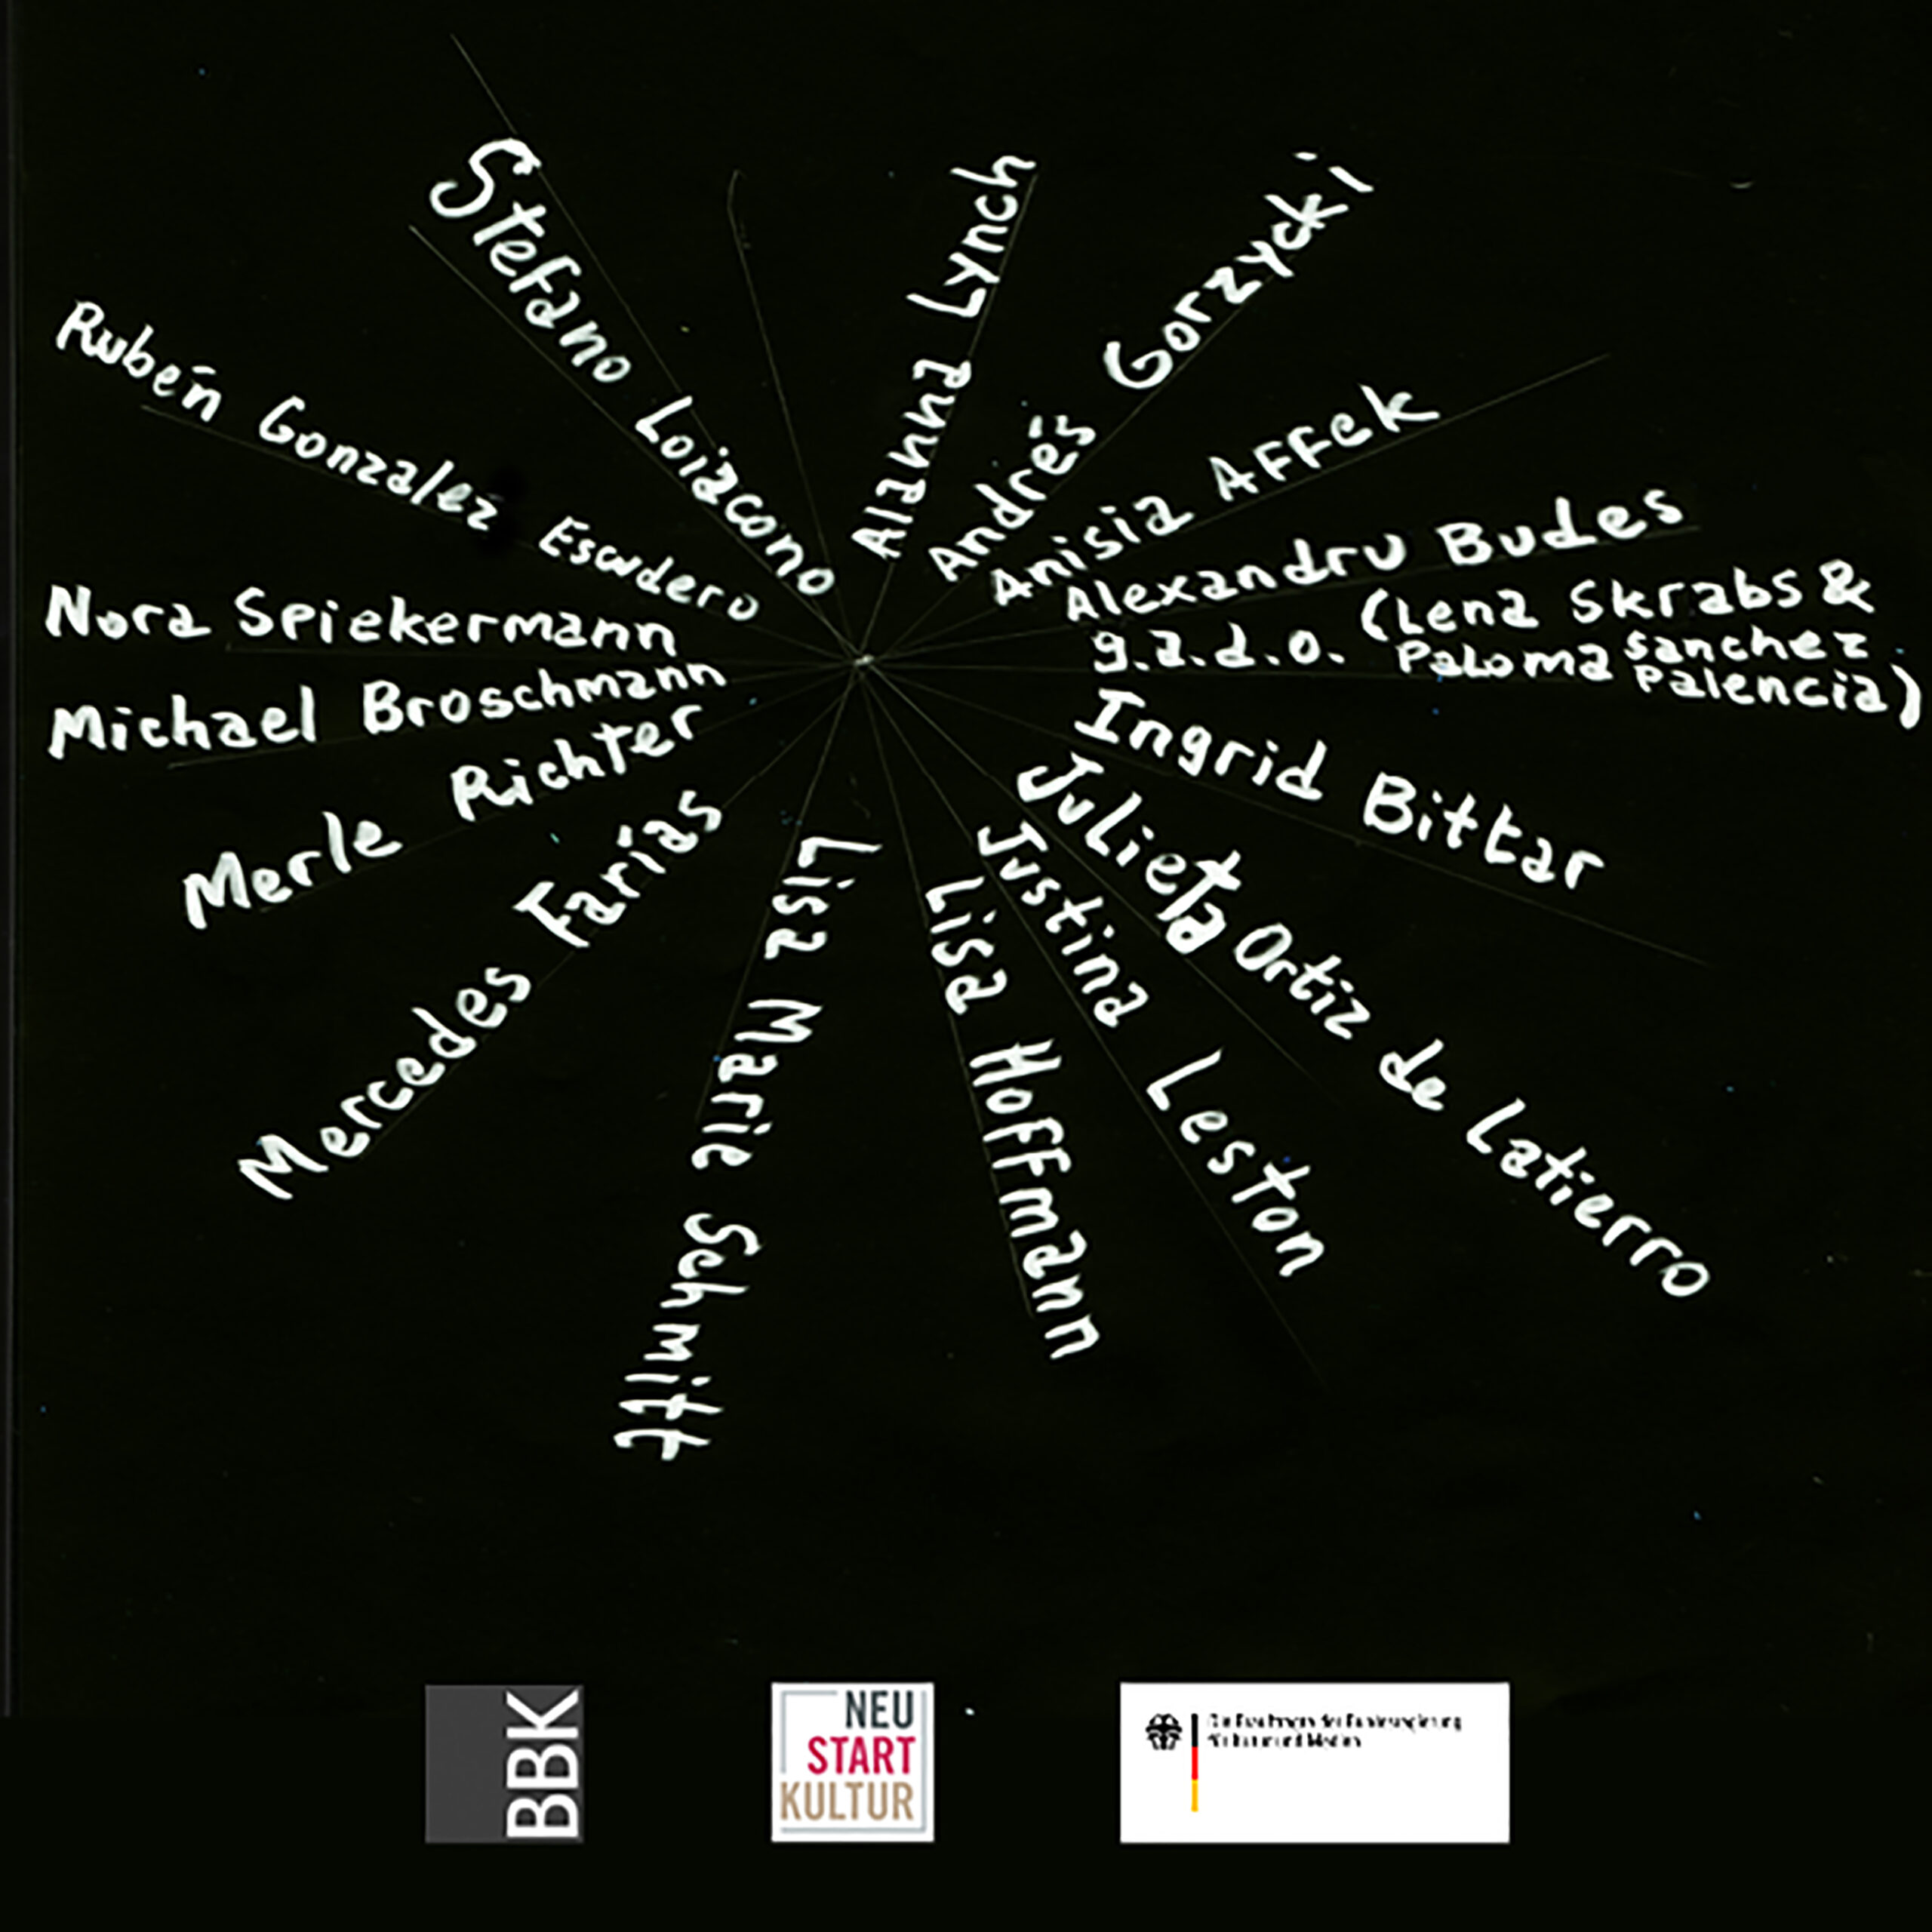 Alanna Lynch
Andrés Gorzycki
Anisia Affek
Alexandru Budes
g.a.d.o. (Lena Skrabs &
Paloma Sanchez
Palencia)
Ingrid Bittar
Julieta Ortiz de Latierro
Justina Leston
Lisa Hoffmann
Lisa Marie Schmitt
Mercedes Farías
Merle Richter
Michael Broschmann
Nora Spiekermann
Rubén Gonzalez Escudero
Stefano Loiacono
BBK
NEU
START
KULTUR